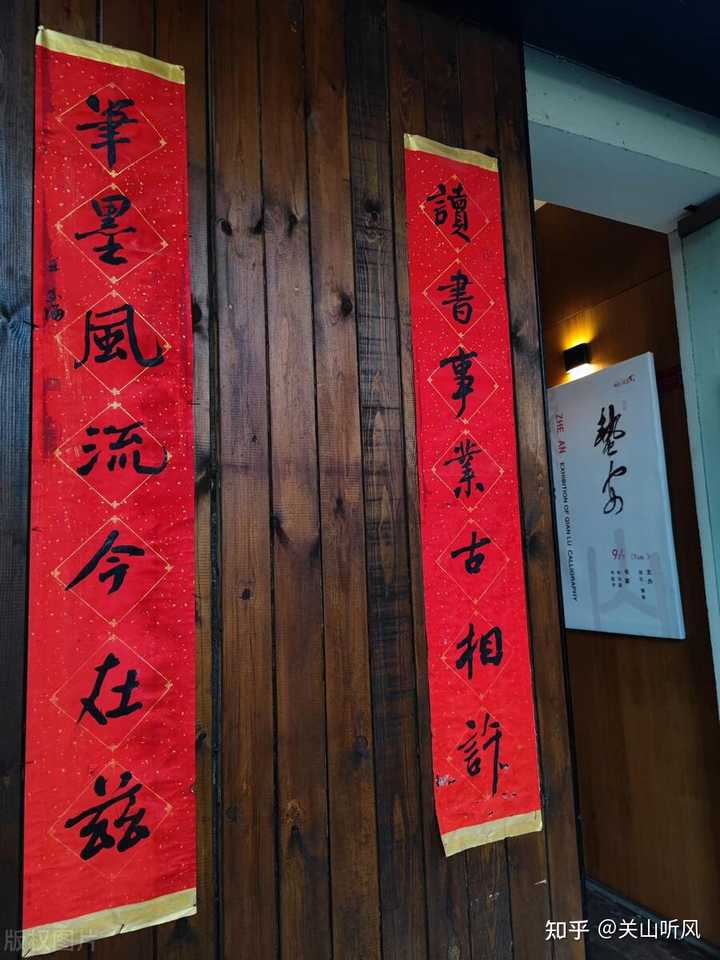 讀書事業古相許
筆墨風流今在茲
ZHE AN
EXHIBITION OF QIAN LU CALLIGRAPHY
蟄安
9/
版权图片
知乎 @关山听风